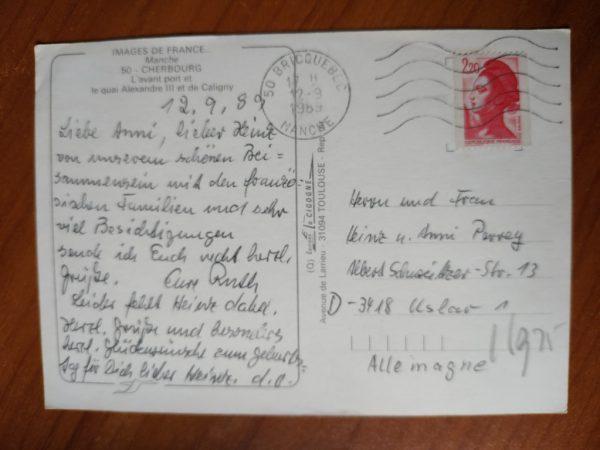 IMAGES DE FRANCE...
Manche
50 - CHERBOURG
L'avant port et
le quai Alexandre III et de Caligny
12.9.89
Liebe Anni, lieber Heinz
von unserem schönen Bei=
sammensein mit den franzö
sischen Familien und sehr
viel Besichtigungen
sende ich Euch recht herzl.
Grüße. Eure Ruth
Leider fehlt Heinz dabei.
Herzl. Grüße und besonders
herzl. Glückwünsche zum Geburts-
tag für Dich lieber Heinz. d.O.
50 BRICQUEBEC
17 H
12-9
1989
MANCHE
2,20
REPUBLIQUE FRANÇAISE
Avenue de Larrieu - 31094 TOULOUSE - Rep
Herrn und Frau
Heinz u. Anni
Albert Schweitzer-Str. 13
D-3418 Uslar 1
Allemagne